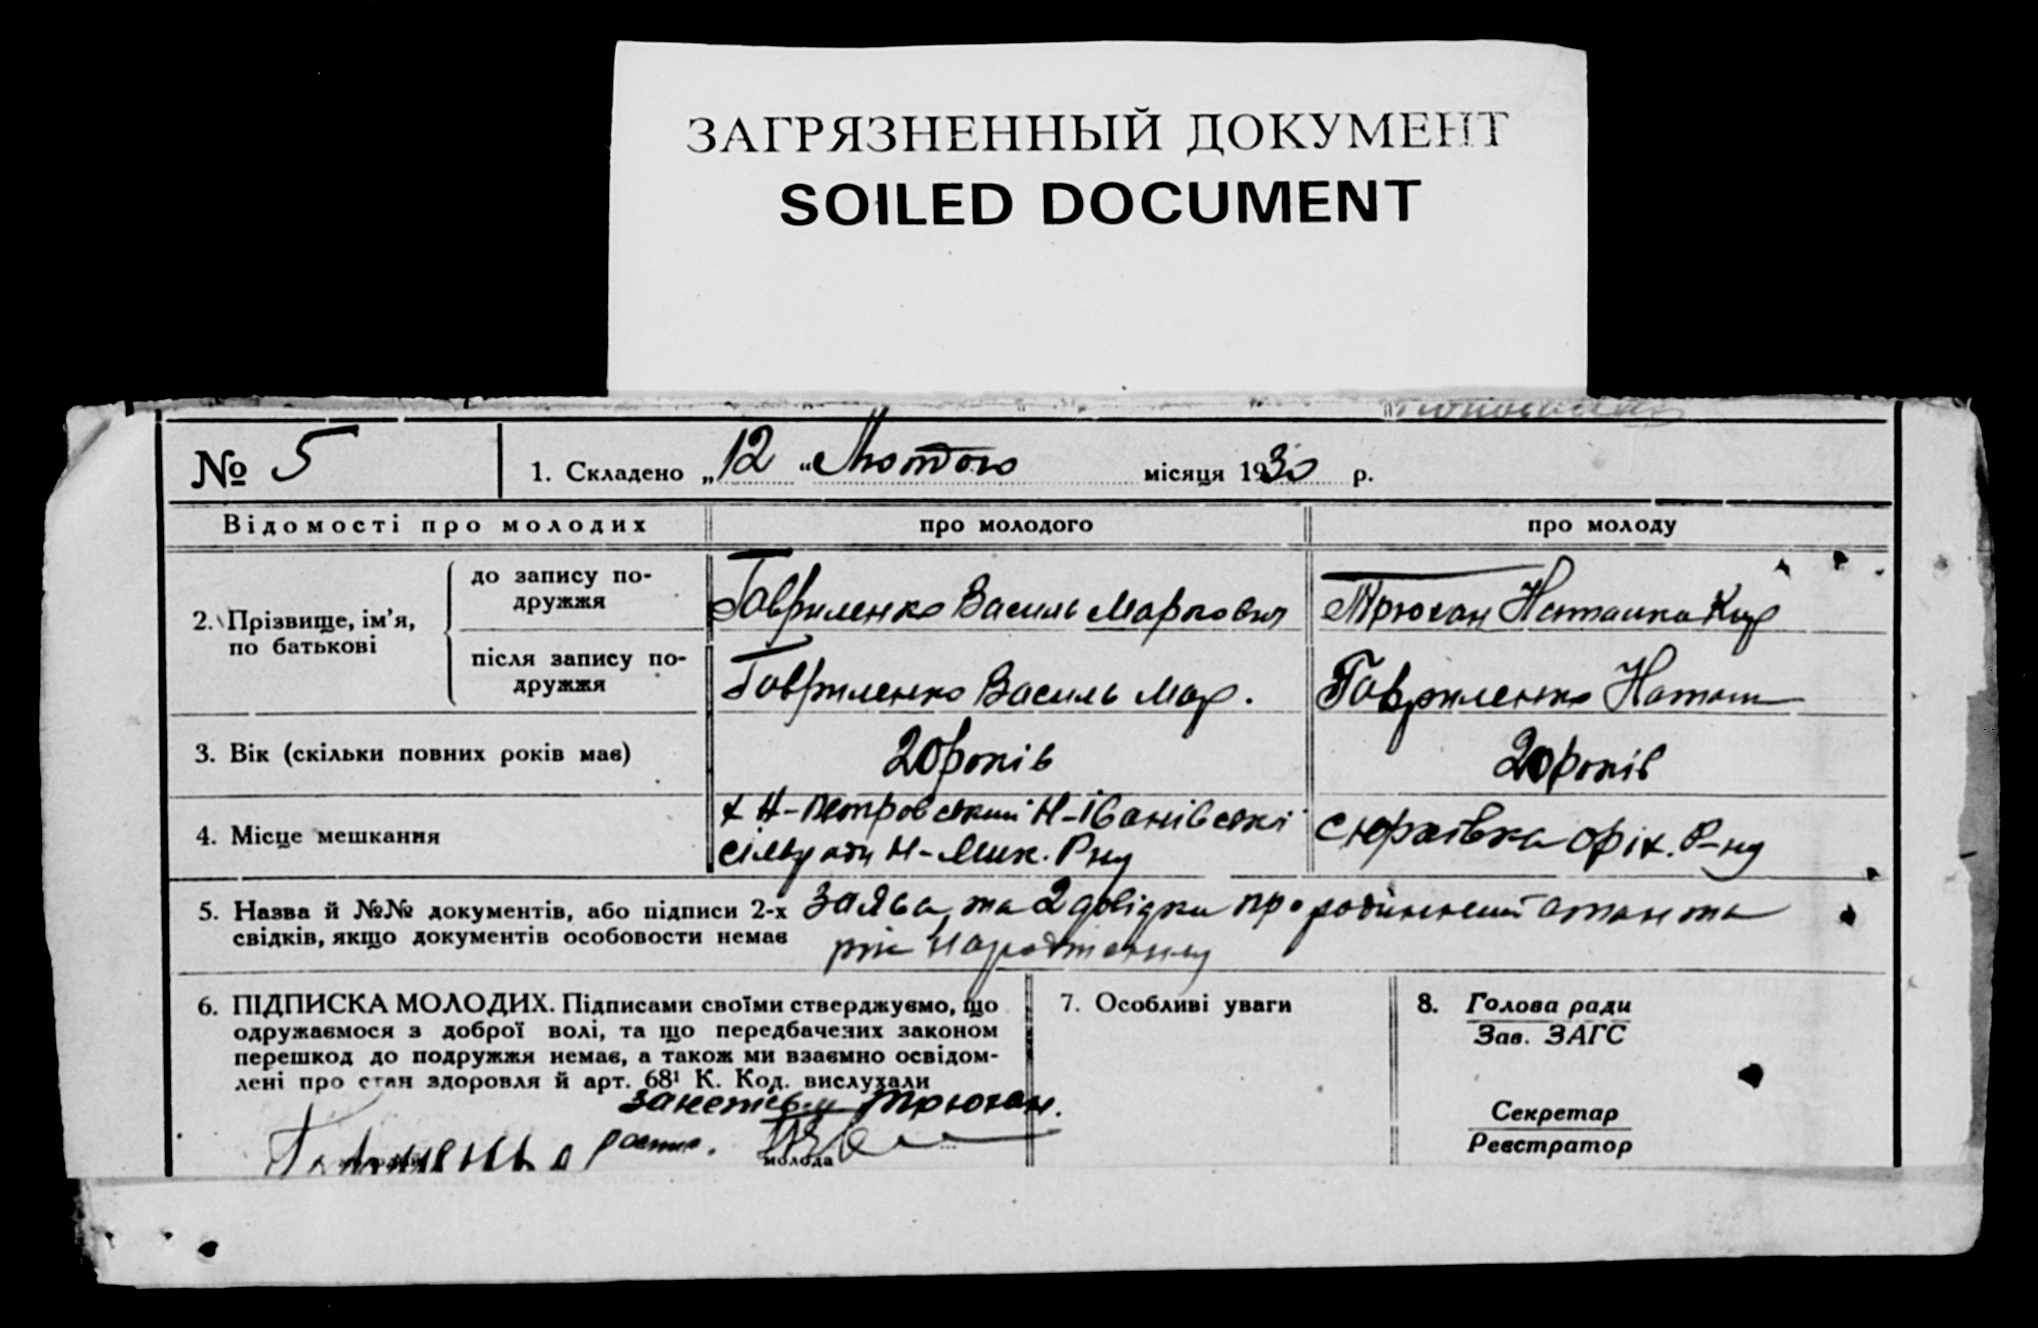 ЗАГРЯЗНЕННЫЙ ДОКУМЕНТ
SOILED DOCUMENT
№ 5
1. Складено „12“ Лютого місяця 1930 р.
Відомості про молодих
про молодого
про молоду
2. Прізвище, ім'я, по батькові
до запису по-
дружжя
Гавриленко Василь Маркович
Трюхан Наташка Кир
після запису по-
дружжя
Гавриленко Василь Мар.
Гавриленко Наташ
3. Вік (скільки повних років має)
20 років
20 років
4. Місце мешкання
х Н-Петровський Н-Іванівської
сільради Н-Мик. Р-ну
Юр'ївка Оріх. Р-ну
5. Назва й №№ документів, або підписи 2-х
свідків, якщо документів особовости немає
Заява та 2 довідки про родинний стан та
рік народження
6. ПІДПИСКА МОЛОДИХ. Підписами своїми стверджуємо, що
одружаємося з доброї волі, та що передбачених законом
перешкод до подружжя немає, а також ми взаємно освідом-
лені про стан здоровля й арт. 68¹ К. Код. вислухали
Трюхан.
Гавриленко
молода
7. Особливі уваги
8. Голова ради
Зав. ЗАГС
Секретар
Реєстратор